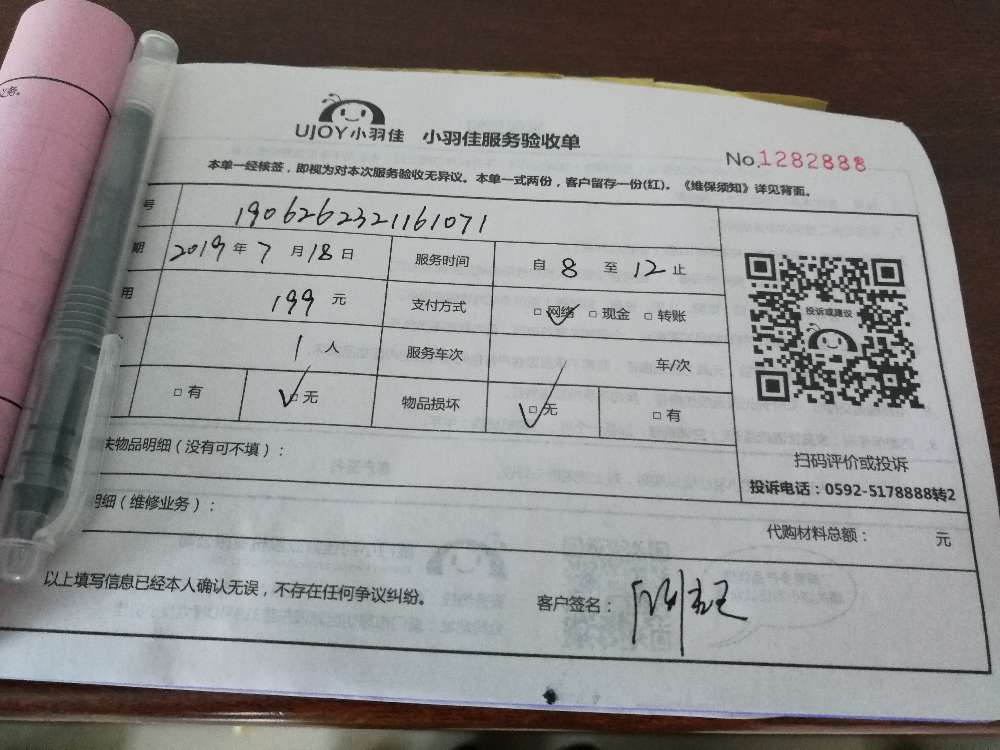 必务。
UJOY小羽佳 小羽佳服务验收单
No.1282888
本单一经核签，即视为对本次服务验收无异议。本单一式两份，客户留存一份(红)。《维保须知》详见背面。
号 1906262321161071
期 2019年7月18日 服务时间 自8至12止
用 199元 支付方式 □网络 □现金 □转账
1人 服务车次 车/次
□有 □无 物品损坏 □无 □有
投诉或建议
扫码评价或投诉
投诉电话：0592-5178888转2
失物品明细（没有可不填）：
明细（维修业务）： 代购材料总额： 元
以上填写信息已经本人确认无误，不存在任何争议纠纷。 客户签名：